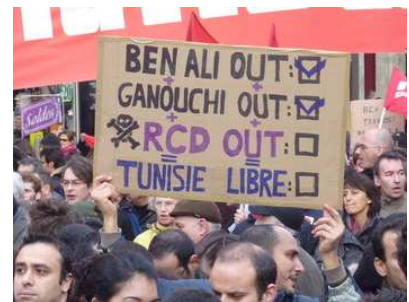 BEN ALI OUT: ☑
+ +
GANOUCHI OUT: ☑
+ +
☠ RCD OUT: ☐
= =
TUNISIE LIBRE: ☐
Soldes